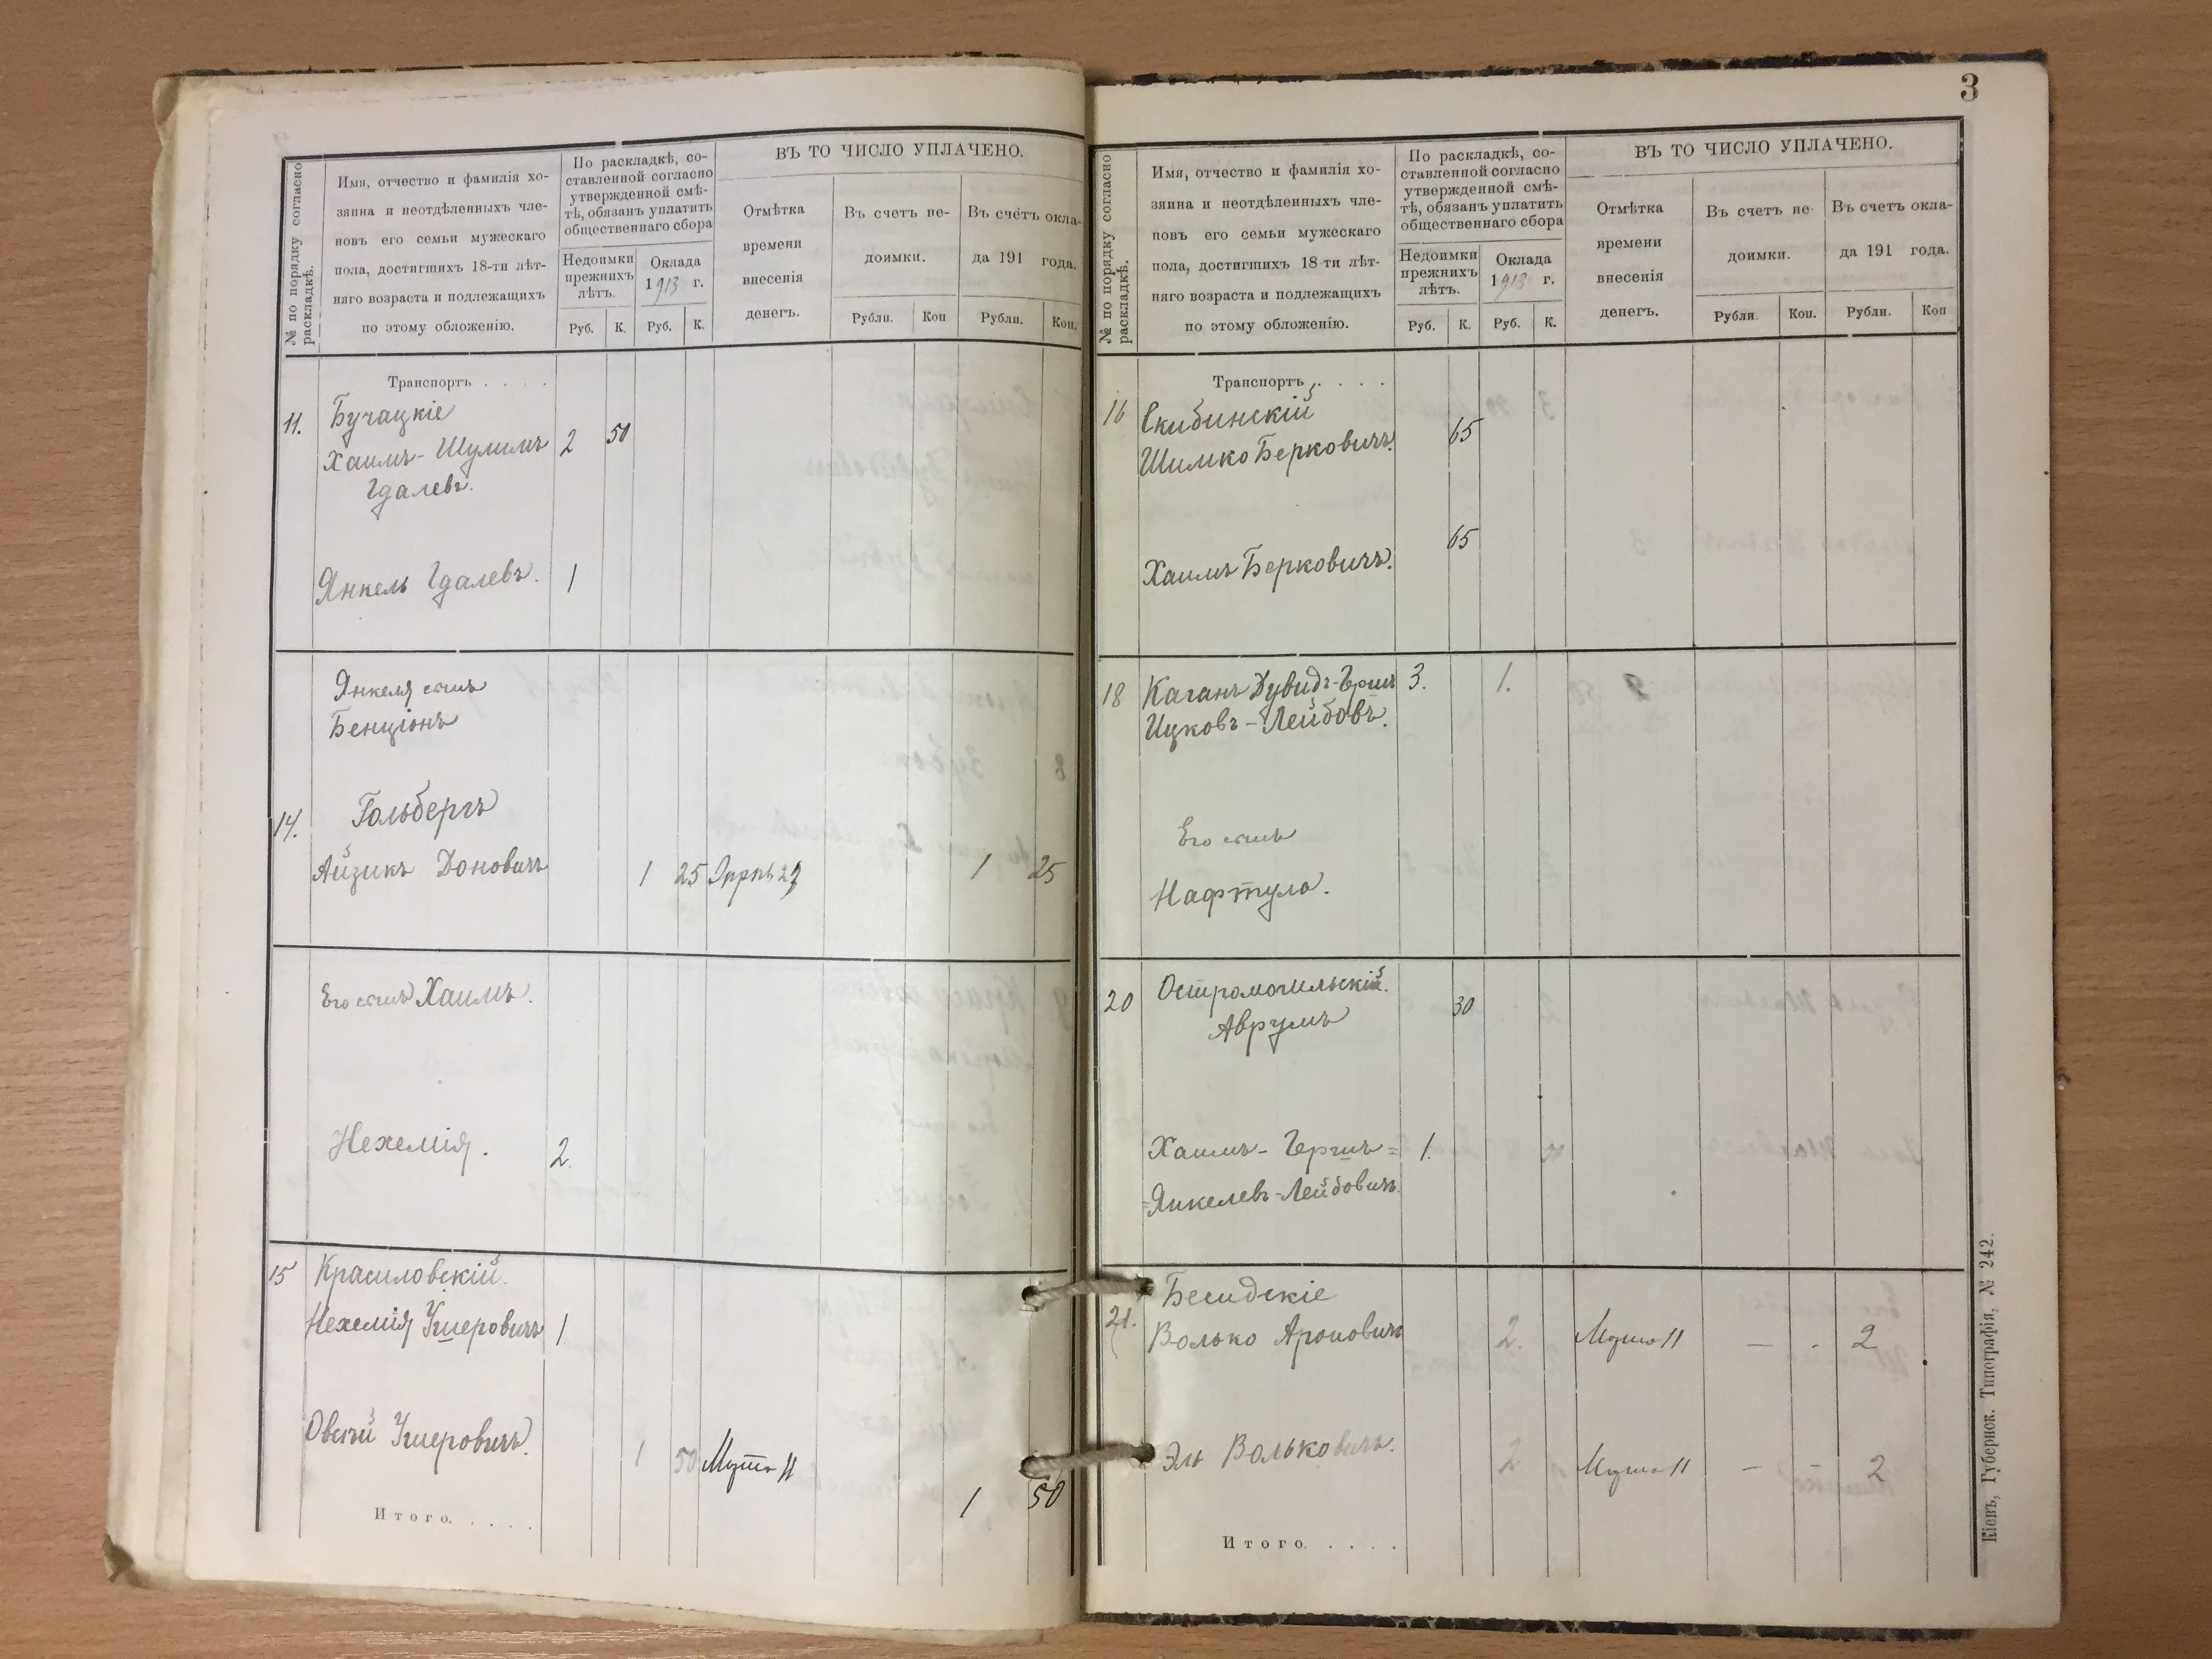 № по порядку согласно раскладкѣ.
Имя, отчество и фамилія хо-
зяина и неотдѣленныхъ чле-
новъ его семьи мужескаго
пола, достигшихъ 18-ти лѣт-
няго возраста и подлежащихъ
по этому обложенію.
По раскладкѣ, со-
ставленной согласно
утвержденной смѣ-
тѣ, обязанъ уплатить
общественнаго сбора
Недоимки
прежнихъ
лѣтъ.
Оклада
1913 г.
Руб. К. Руб. К.
ВЪ ТО ЧИСЛО УПЛАЧЕНО.
Отмѣтка
времени
внесенія
денегъ.
Въ счетъ не-
доимки.
Въ счетъ окла-
да 191 года.
Рубли. Коп Рубли. Коп.
Транспортъ . . . .
11. Бучацкіе
Хаимъ-Шулимъ 2 50
Гдалевъ.
Янкель Гдалевъ. 1
Янкеля сынъ
Бенціонъ
14. Гольбергъ
Айзикъ Доновичъ 1 25 23 1 25
Его сынъ Хаимъ.
Нехемія. 2.
15 Красиловскій.
Нехемія Ушеровичъ 1
Овсѣй Ушеровичъ. 1 50 11
1 50
Итого. . . . .
3
№ по порядку согласно раскладкѣ.
Имя, отчество и фамилія хо-
зяина и неотдѣленныхъ чле-
новъ его семьи мужескаго
пола, достигшихъ 18-ти лѣт-
няго возраста и подлежащихъ
по этому обложенію.
По раскладкѣ, со-
ставленной согласно
утвержденной смѣ-
тѣ, обязанъ уплатить
общественнаго сбора
Недоимки
прежнихъ
лѣтъ.
Оклада
1913 г.
Руб. К. Руб. К.
ВЪ ТО ЧИСЛО УПЛАЧЕНО.
Отмѣтка
времени
внесенія
денегъ.
Въ счетъ не-
доимки.
Въ счетъ окла-
да 191 года.
Рубли. Коп. Рубли. Коп
Транспортъ . . . .
16 Скибинскій
Шимко Берковичъ. 65
65
Хаимъ Берковичъ.
18 Каганъ Дувидъ-Гершъ 3. 1.
Ицковъ-Лейбовъ.
Его сынъ
Нафтула.
20 Остромогильскій.
Аврумъ 30
Хаимъ-Гершъ= 1. 50
=Янкелевъ-Лейбовичъ.
21. Бесидскіе
Волько Ароновичъ 2. 11 — - 2
Эль Вольковичъ. 2 11 — - 2
Итого. . . . .
Кіевъ, Губернск. Типографія, № 242.